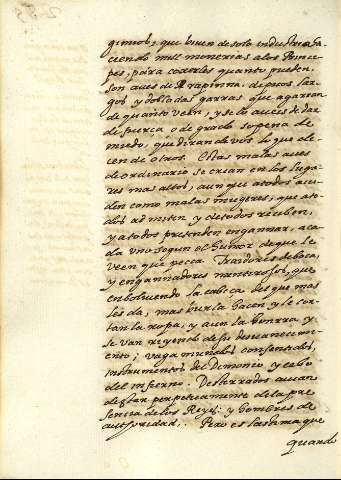 gimios, que viven de solo industria ha-
ciendo mil monerias a los Princi-
pes, para cogerles quanto pueden.
son aves de Rrapinna, de picos lar-
gos y dobladas garras que agarran
de quanto veen, y se les a veces de dar
de fuerca o de grado so pena de
miedo, que diran de vos lo que di-
cen de otros. Estas malas aves
de ordinario se crean en los lugares
mas altos, aunque a todos acu-
den como malas mugeres, que a to-
dos admiten y de todos reciben,
y a todos pretenden engannar, a ca-
da uno segun el humor de que le
veen que pecca. Traidores de boca,
y engannadores mentirosos, que
enbolviendo la cabeca al que mas
les da, mas burla hacen y le cor-
tan la ropa, y aun la honrra y
se van riyendo de su desvanecimi-
ento; vagamundos consentidos,
instrumentos del Demonio y cebo
del infierno. Desterrados avian
de estar perpetuamente de la pre
sencia de los Reyes y hombres de
autoridad. Pero es lastima que
quando